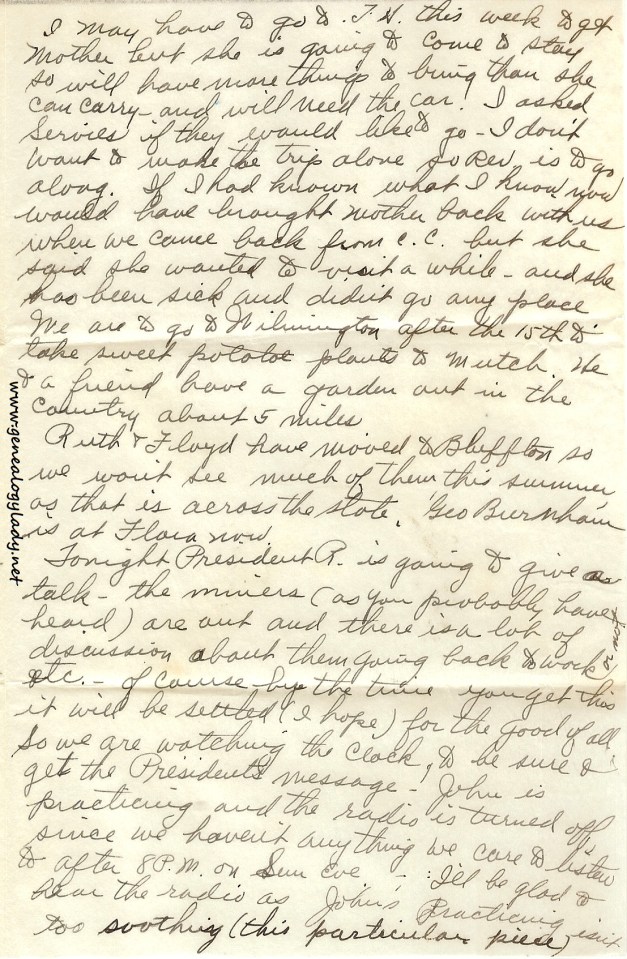 I may have to go to T.H. this week to get
Mother but she is going to come to stay
so will have more things to bring than she
can carry - and will need the car. I asked
Servies if they would like to go - I don't
want to make the trip alone so Rev. is to go
along. If I had known what I know now
would have brought Mother back with us
when we came back from C.C. but she
said she wanted to visit a while - and she
has been sick and didn't go any place
We are to go to Wilmington after the 15th to
take sweet potatoe plants to Mutch. He
& a friend have a garden out in the
country about 5 miles
Ruth & Floyd have moved to Bluffton so
we won't see much of them this summer
as that is across the state. Geo Burnham
is at Flora now
Tonight President R. is going to give a
talk - the miners (as you probably have
heard) are out and there is a lot of
discussion about them going back to work or not
etc. - of course by the time you get this
it will be settled (I hope) for the good of all
So we are watching the clock, to be sure &
get the Presidents message - John is
practicing and the radio is turned off
since we havent anything we care to listen
to after 8 P.M. on Sun eve - I'll be glad to
hear the radio as John's Practicing isn't
too soothing (this particular piece)
www.genealogylady.net